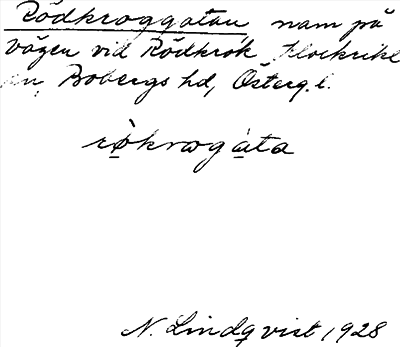 Rödkroggatan namn på
vägen vid Rödkrok Klockrike
sn, Bobergs hd, Österg. l.
rø̀kroggáta
N. Lindqvist 1928